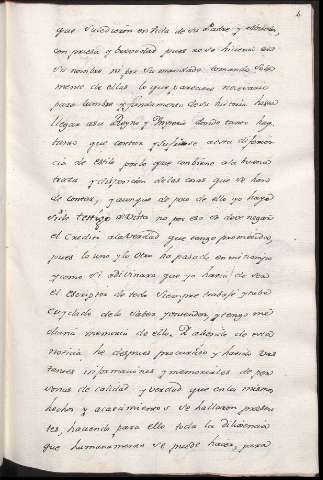 4
que sucedieron en vida de su Padre, y abuelos,
con priesa y brevedad pues no se hicieron en
su nombre ni por su mandado, tomando sola
mente de ellas lo que pareciere necesario
para lumbre y fundamento de su historia hasta
llegar a su Reyno y Imperio donde tanto hay
tanto que contar y sufrirse a esta diferen
cia de estilo por lo que conviene a la buena
traza y disposición de las cosas que se han
de contar, y aunque de poco de ello yo haya
sido testigo de vista no por eso se debe negar
el credito a la verdad que tengo prometida,
pues lo uno y lo otro ha pasado en mi tiempo
y como si adivinara que yo havia de ser
el escriptor de todo siempre trabajé y tube
cuydado de lo saber y entender, y tengo me
diana memoria de ello. Y además de esta
noticia he despues procurado y havido bas
tantes informaciones y memoriales de per
sonas de calidad y verdad que en los mismos
hechos y acaecimientos se hallaron presen
tes, haciendo para ello toda la diligencia
que humanamente se puede hacer, para